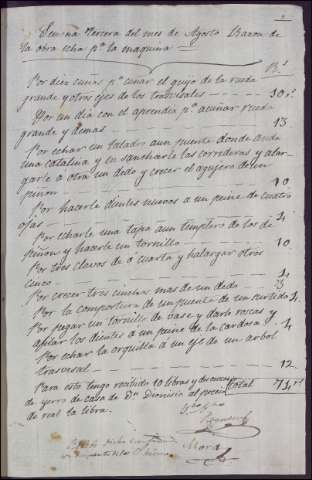 Semana Tercera del mes de Agosto Razon de
la obra echa pª la maquina
Rs
Por diez cuñas pª cuñar el quijo de la rueda
grande y otros ejes de los trasversales 30 rs
Por un dia con el aprendiz pª acuñar rueda
grande y demas 13
Por echar un taladro aun puente donde anda
una catalina y en sancharle las correderas y alar-
garle ó otra un dedo y crecer el agujero de un
piñon 10
Por hacerle dientes nuevos a un peine de cuatro
ojas 4
Por echarle una tapa aun templero de los de
piñon y hacerle un tornillo 10
Por tres clavos de ó cuarta y halargar otros
cinco 4
Por crecer tres cinchas mas de un dedo 3
Por la compostura de un puente de un surtido 4
Por pegar un tornillo de vase y darle roscas y
afilar los dientes á un peine de la cardosa 4
Por echar la orquilla á un eje de un arbol
trasversal 12
Para esto tengo recibido 10 libras y
de yerro de casa de Dn Dionisio al precio
de real la libra. Total 94 rs
Mora